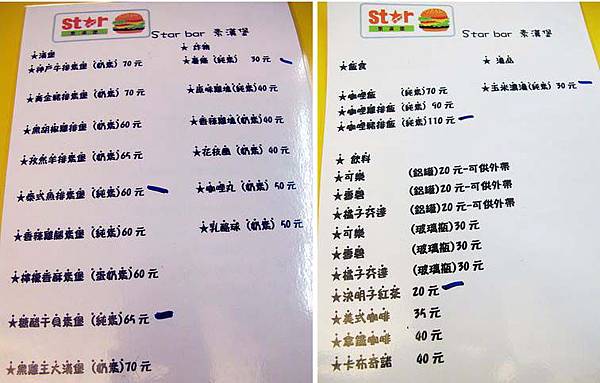 Star
Star bar 素漢堡
★漢堡
★神戶牛排素堡 (奶素) 70 元
★黃金豬排素堡 (奶素) 70 元
★黑胡椒雞排堡 (奶素) 60 元
★孜然羊排素堡 (奶素) 65 元
★泰式魚排素堡 (純素) 60 元
★香辣雞腿素堡 (純素) 60 元
★檸檬香酥素堡 (蛋奶素) 60 元
★糖醋干貝素堡 (純素) 65 元
★黑雕王大漢堡 (奶素) 70 元
★ 炸物
★薯條 (純素) 30 元
★原味雞塊(奶素) 40 元
★香辣雞塊(奶素) 40 元
★花枝圈 (奶素) 40 元
★咖哩丸 (奶素) 50 元
★乳酪球 (奶素) 50 元
Star
Star bar 素漢堡
★飯食
★咖哩飯 (純素) 70 元
★咖哩雞排飯 (純素) 90 元
★咖哩豬排飯 (純素) 110 元
★ 湯品
★玉米濃湯(純素) 30 元
★ 飲料
★可樂 (鋁罐) 20 元-可供外帶
★雪碧 (鋁罐) 20 元-可供外帶
★橘子芬達 (鋁罐) 20 元-可供外帶
★可樂 (玻璃瓶) 30 元
★雪碧 (玻璃瓶) 30 元
★橘子芬達 (玻璃瓶) 30 元
★決明子紅茶 20 元
★美式咖啡 35 元
★拿鐵咖啡 40 元
★卡布奇諾 40 元